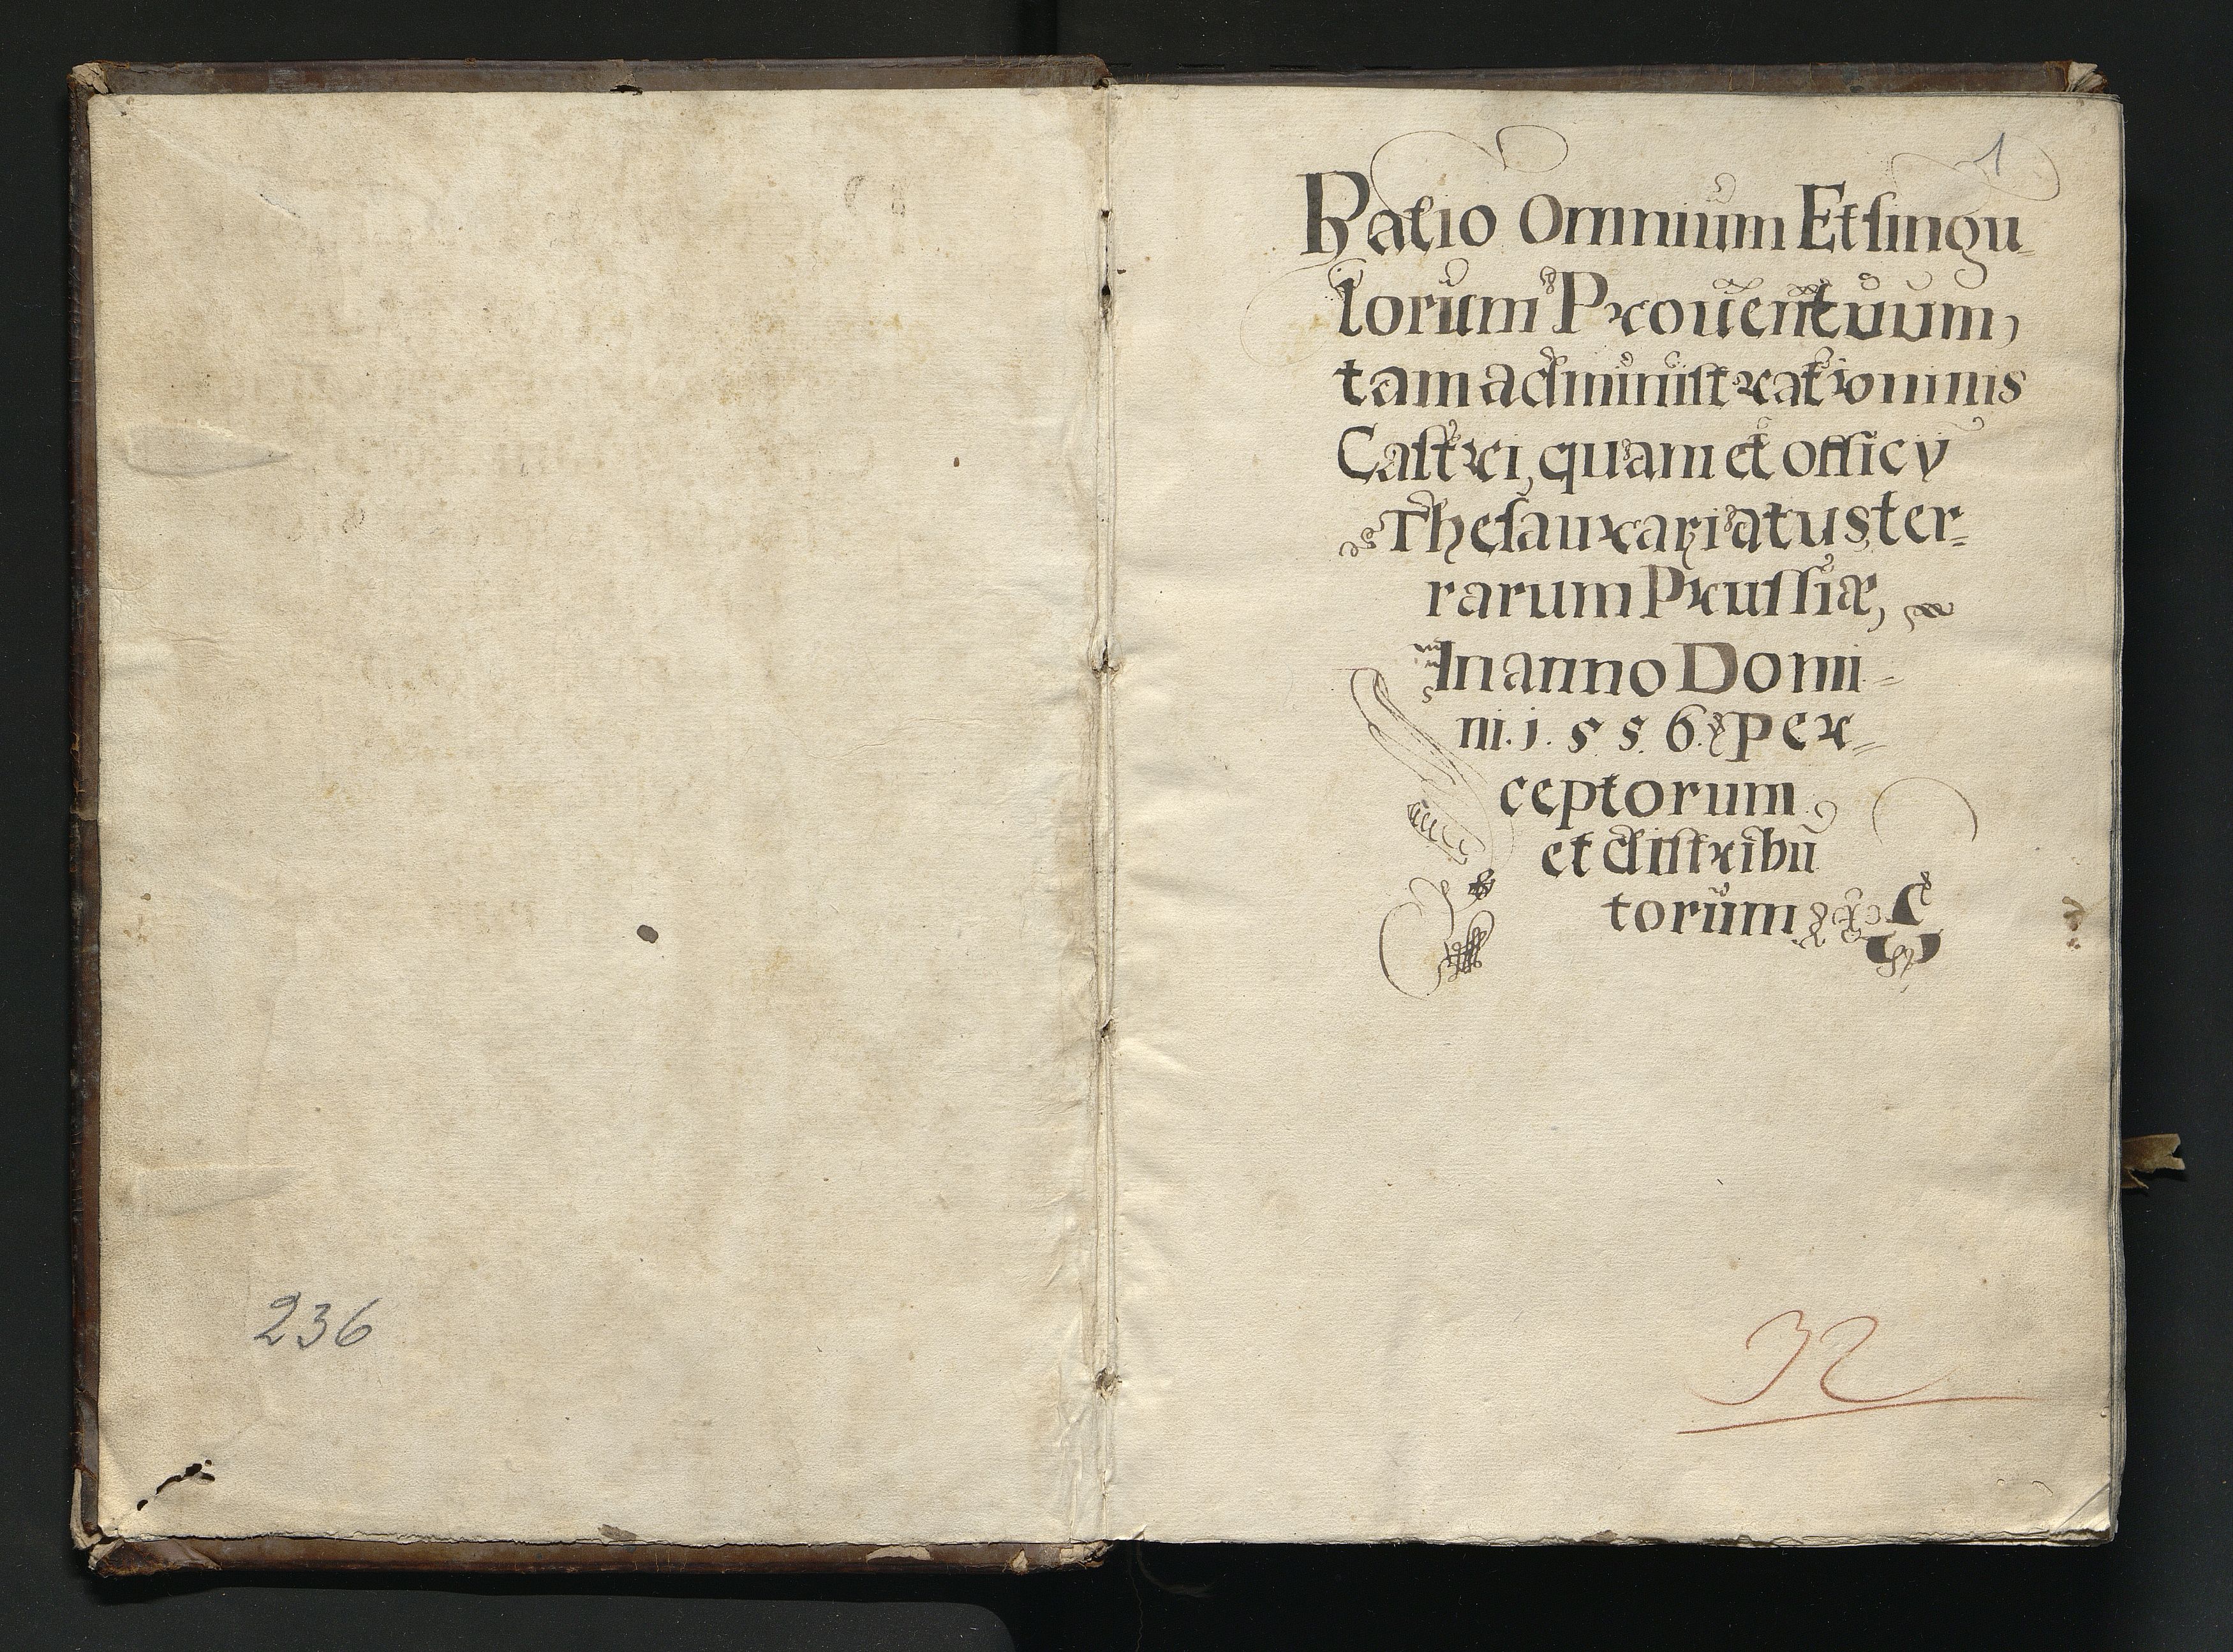 236
1
Ratio Omnium Et singu-
lorum Prouentuum,
tam administrationis
Castri, quam et officÿ
Thesaurariatus ter=
rarum Prussiæ,
In anno Domi-
ni. j. 5 5. 6. per=
ceptorum
et distribu
torum
32